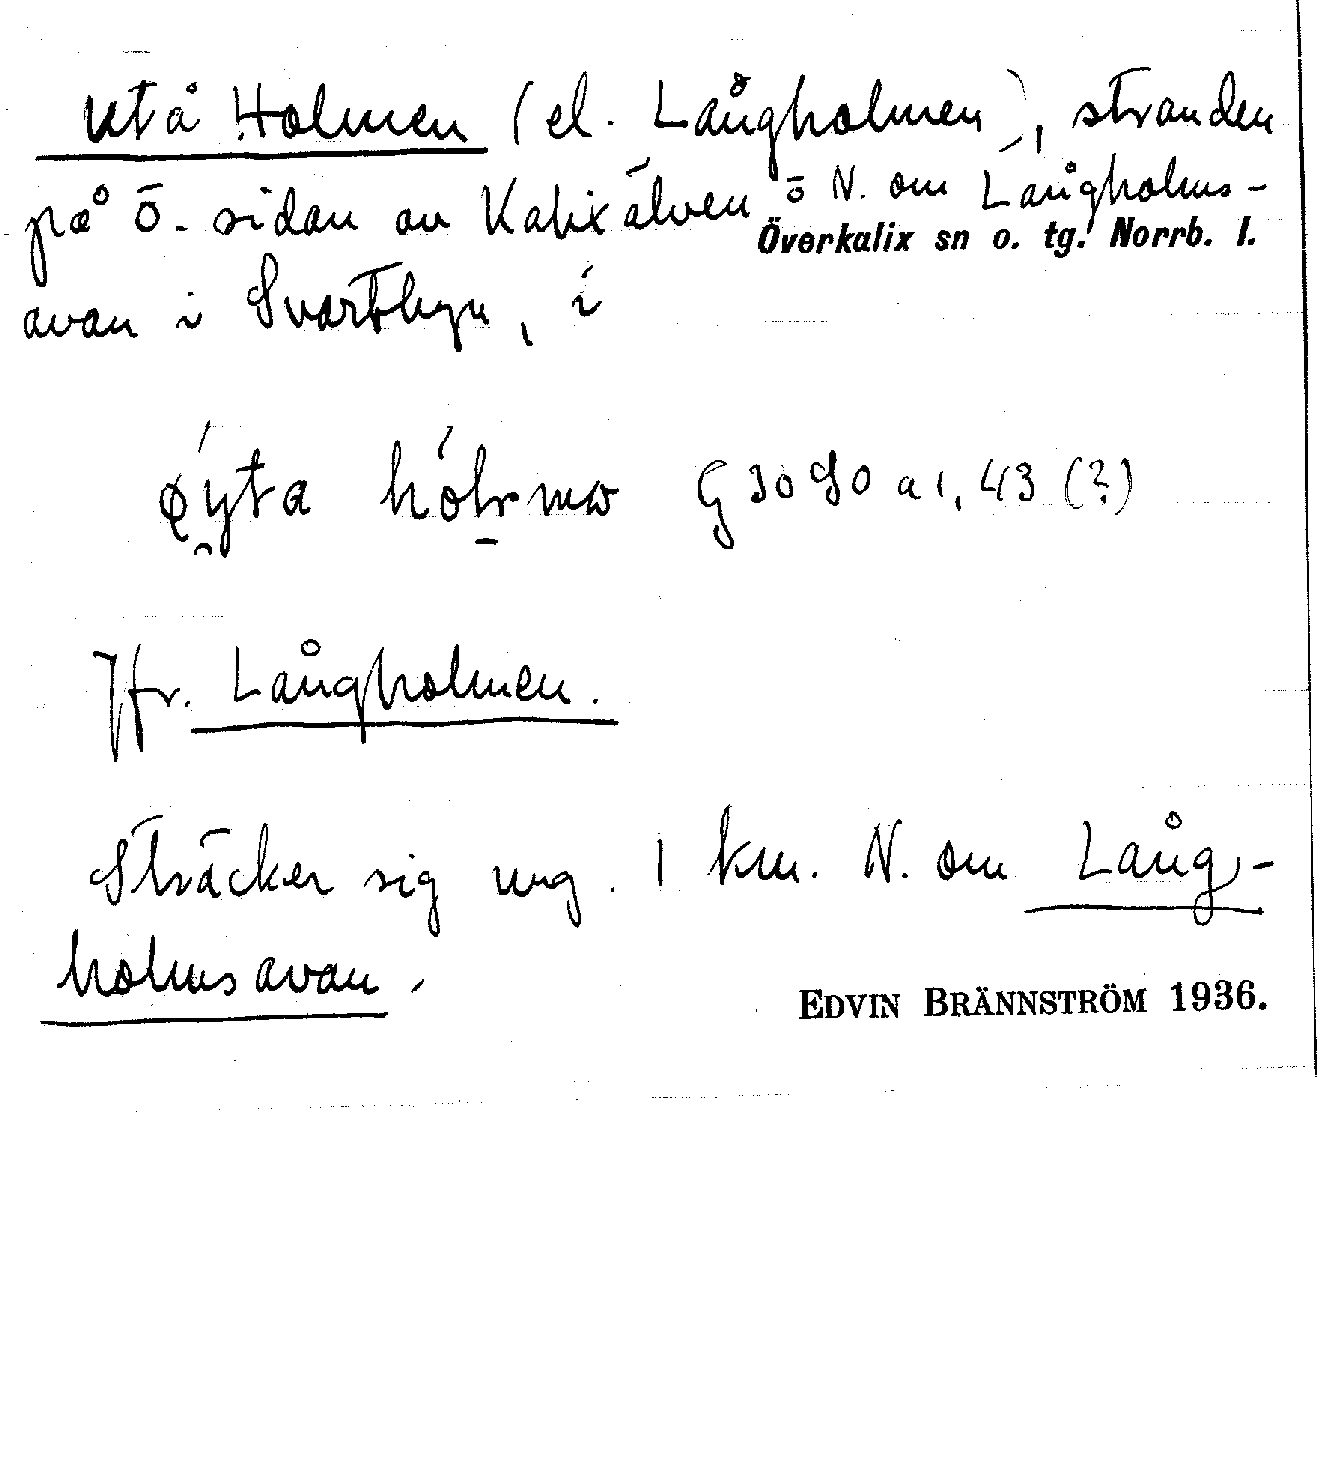 Utå Holmen (el. Långholmen), stranden
på Ö. sidan av Kalixälven o N. om Långholms-
Överkalix sn o. tg. Norrb. l.
avan i Svartbyn, i
hólmω G 3090 a 1, 43 (?)
Jfr. Långholmen.
Sträcker sig ung. 1 km. N. om Lång-
holmsavan.
EDVIN BRÄNNSTRÖM 1936.